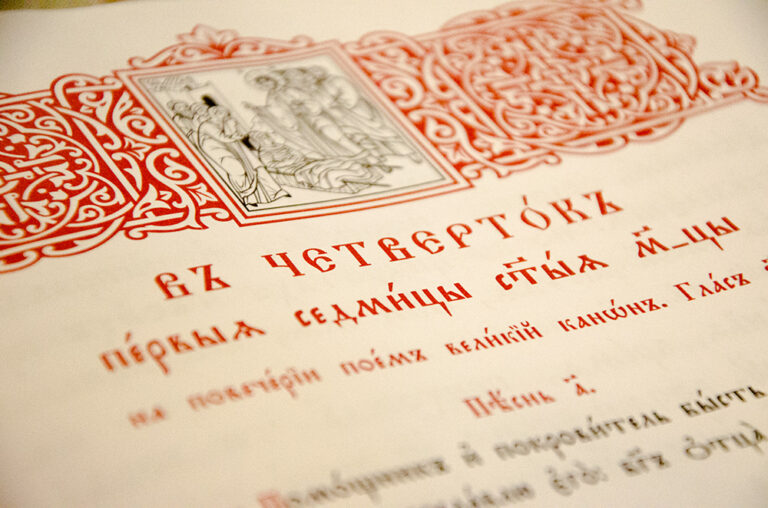 въ четверто́къ
пе́рвыѧ седми́цы ст҃ы́ѧ м҃-цы
на повече́рїи пое́мъ вели́кїй канѡ́нъ. Гла́съ
Пѣ́снь а҃.
Помо́щникъ и҆ покрови́тель бы́сть
є҆го̀: бг҃ъ ѻ҆тца̀